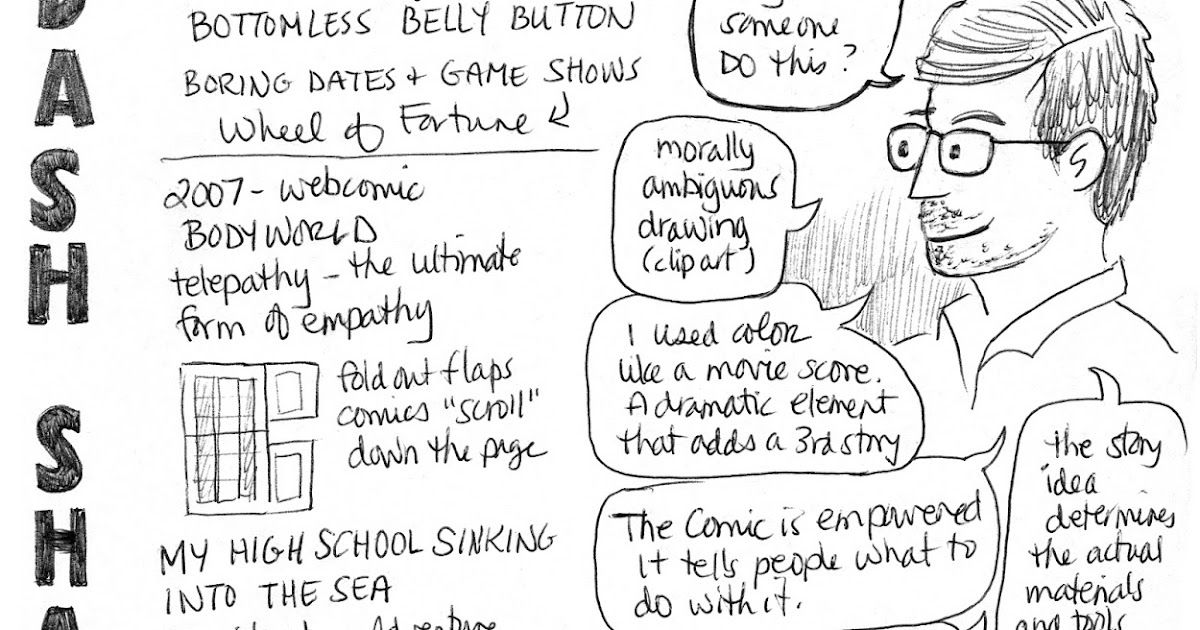 DASH SHA
BOTTOMLESS BELLY BUTTON
BORING DATES + GAME SHOWS
Wheel of Fortune
2007 - webcomic
BODYWORLD
telepathy - the ultimate
form of empathy
fold out flaps
comics "scroll"
down the page
MY HIGH SCHOOL SINKING
INTO THE SEA
Adventure
someone
DO this?
morally
ambiguous
drawing
(clip art)
I used color
like a movie score.
A dramatic element
that adds a 3rd story
The Comic is empowered
It tells people what to
do with it.
the story
idea
determines
the actual
materials
and tools